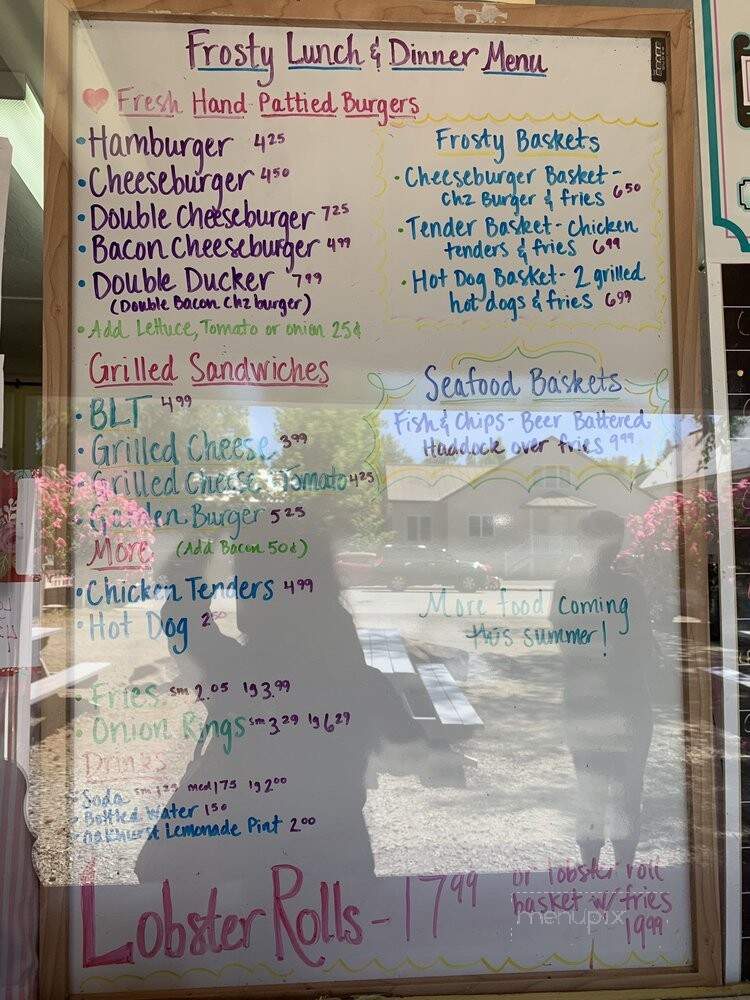 Frosty Lunch & Dinner Menu
Fresh Hand Pattied Burgers
• Hamburger 4.25
• Cheeseburger 4.50
• Double Cheeseburger 7.25
• Bacon Cheeseburger 4.99
• Double Ducker 7.99
(Double Bacon Chz burger)
• Add Lettuce, Tomato or onion 25¢
Frosty Baskets
• Cheeseburger Basket -
chz Burger & fries 6.50
• Tender Basket - chicken
tenders & fries 6.99
• Hot Dog Basket - 2 grilled
hot dogs & fries 6.99
Grilled Sandwiches
• BLT 4.99
• Grilled Cheese 3.99
• Grilled Cheese Tomato 4.25
• Garden Burger 5.25
Seafood Baskets
Fish & Chips - Beer Battered
Haddock over fries 9.99
More (Add Bacon 50¢)
• Chicken Tenders 4.99
• Hot Dog 2.50
More food coming
this summer!
• Fries sm 2.05 lg 3.99
• Onion Rings sm 3.29 lg 6.29
Drinks
• Soda sm med 1.75 lg 2.00
• Bottled Water 1.50
• Oakhurst Lemonade Pint 2.00
Lobster Rolls - 17.99
or lobster roll
basket w/ fries
19.99
menupix